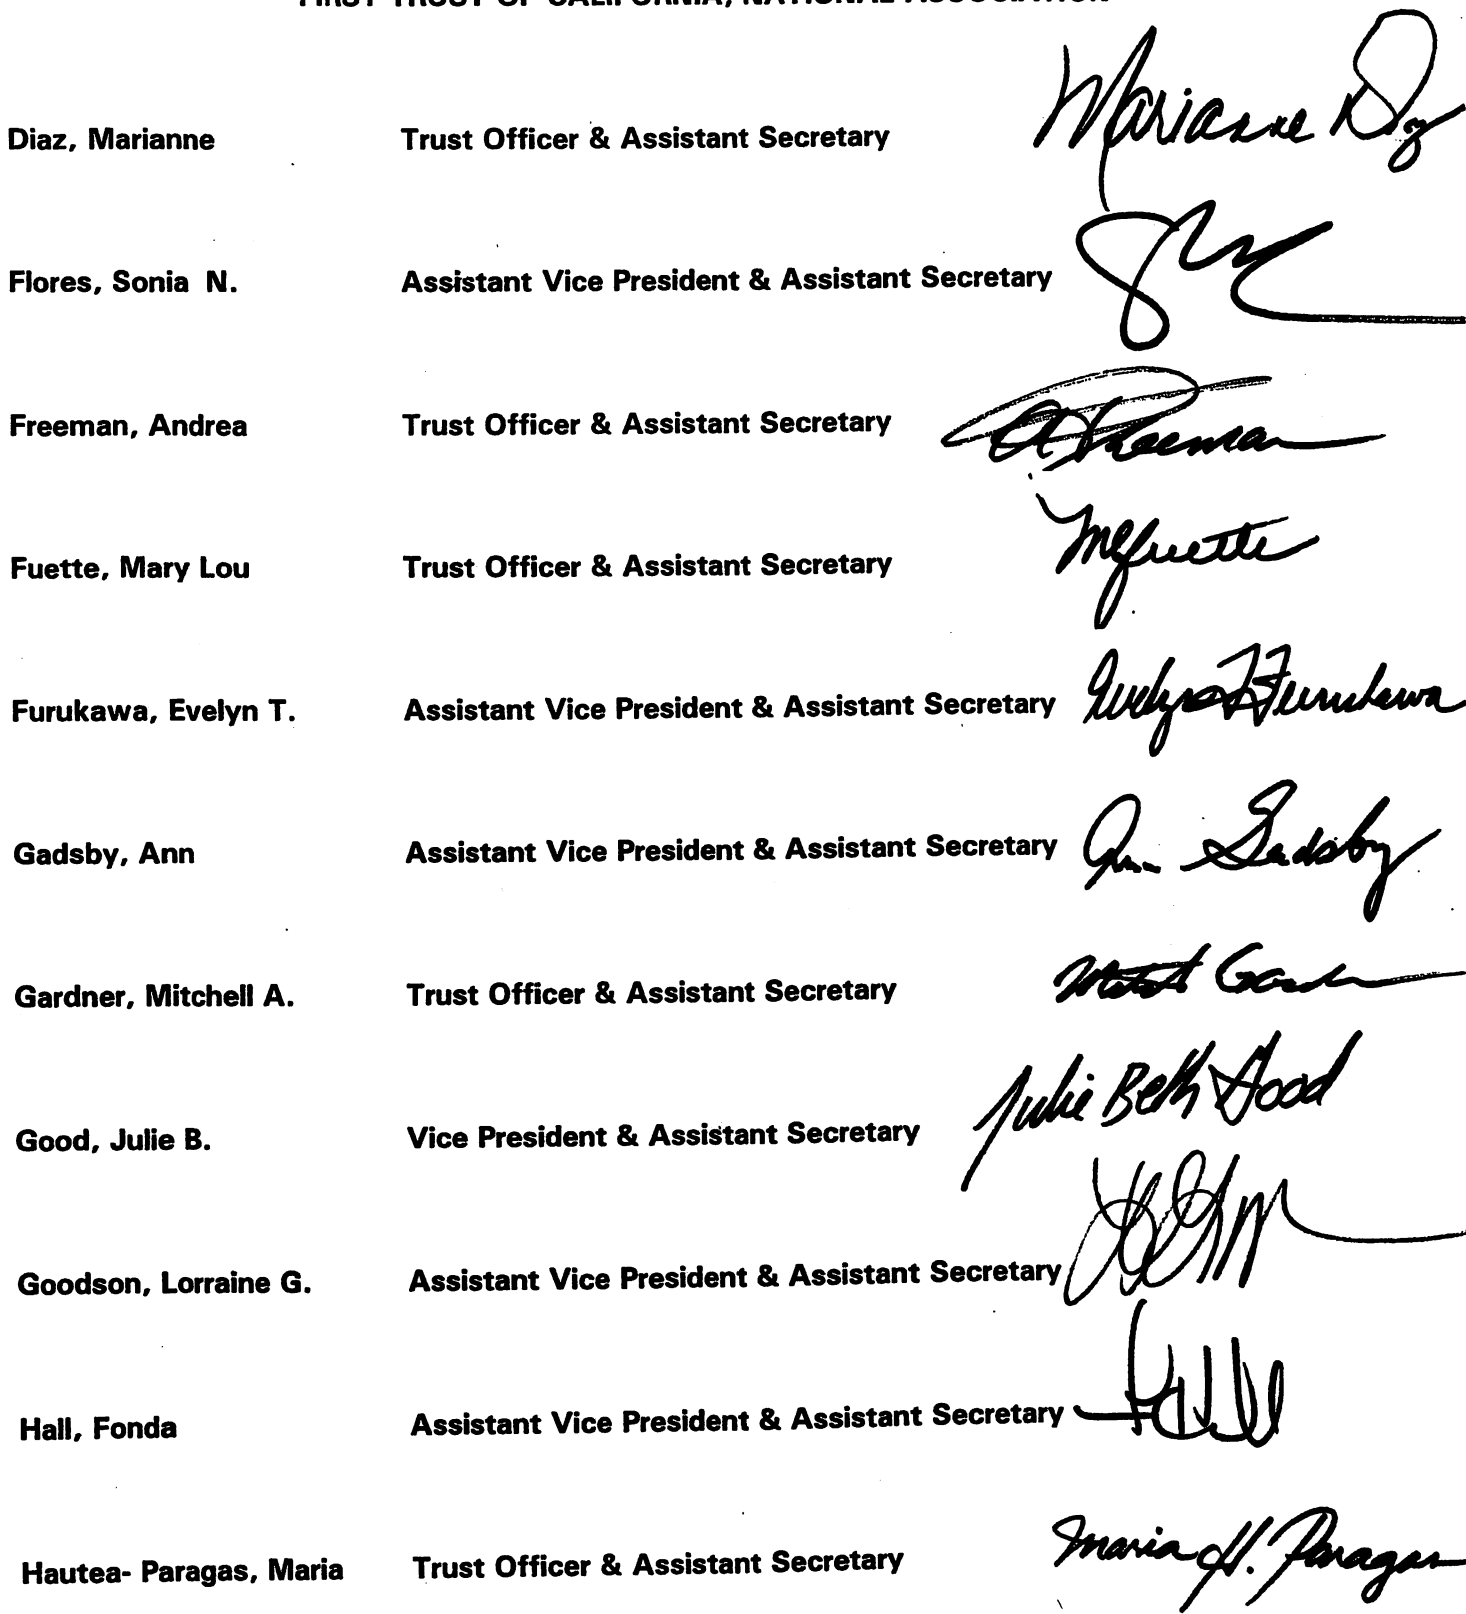 FIRST TRUST OF CALIFORNIA, NATIONAL ASSOCIATION
Diaz, Marianne Trust Officer & Assistant Secretary Marianne Diaz
Flores, Sonia N. Assistant Vice President & Assistant Secretary
Freeman, Andrea Trust Officer & Assistant Secretary A Freeman
Fuette, Mary Lou Trust Officer & Assistant Secretary MLFuette
Furukawa, Evelyn T. Assistant Vice President & Assistant Secretary Evelyn T Furukawa
Gadsby, Ann Assistant Vice President & Assistant Secretary Ann Gadsby
Gardner, Mitchell A. Trust Officer & Assistant Secretary
Good, Julie B. Vice President & Assistant Secretary Julie Beth Good
Goodson, Lorraine G. Assistant Vice President & Assistant Secretary
Hall, Fonda Assistant Vice President & Assistant Secretary F Hall
Hautea- Paragas, Maria Trust Officer & Assistant Secretary Maria H. Paragas